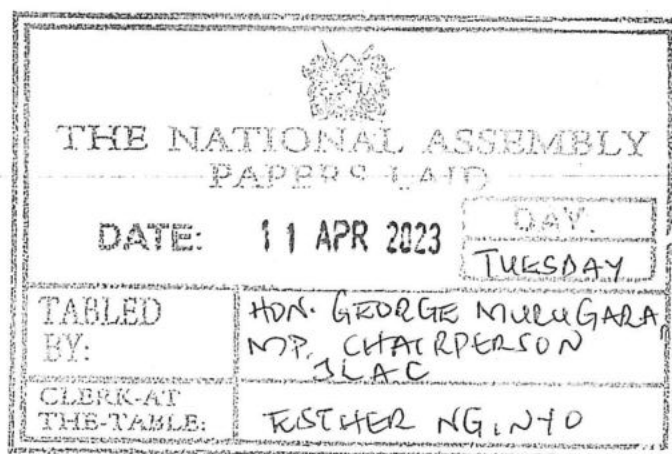 THE NATIONAL ASSEMBLY
PAPERS LAID
DATE: 11 APR 2023
DAY:
TUESDAY
TABLED BY:
HON. GEORGE MURUGARA,
MP. CHAIRPERSON
JLAC
CLERK-AT
THE-TABLE:
ESTHER NGINYO